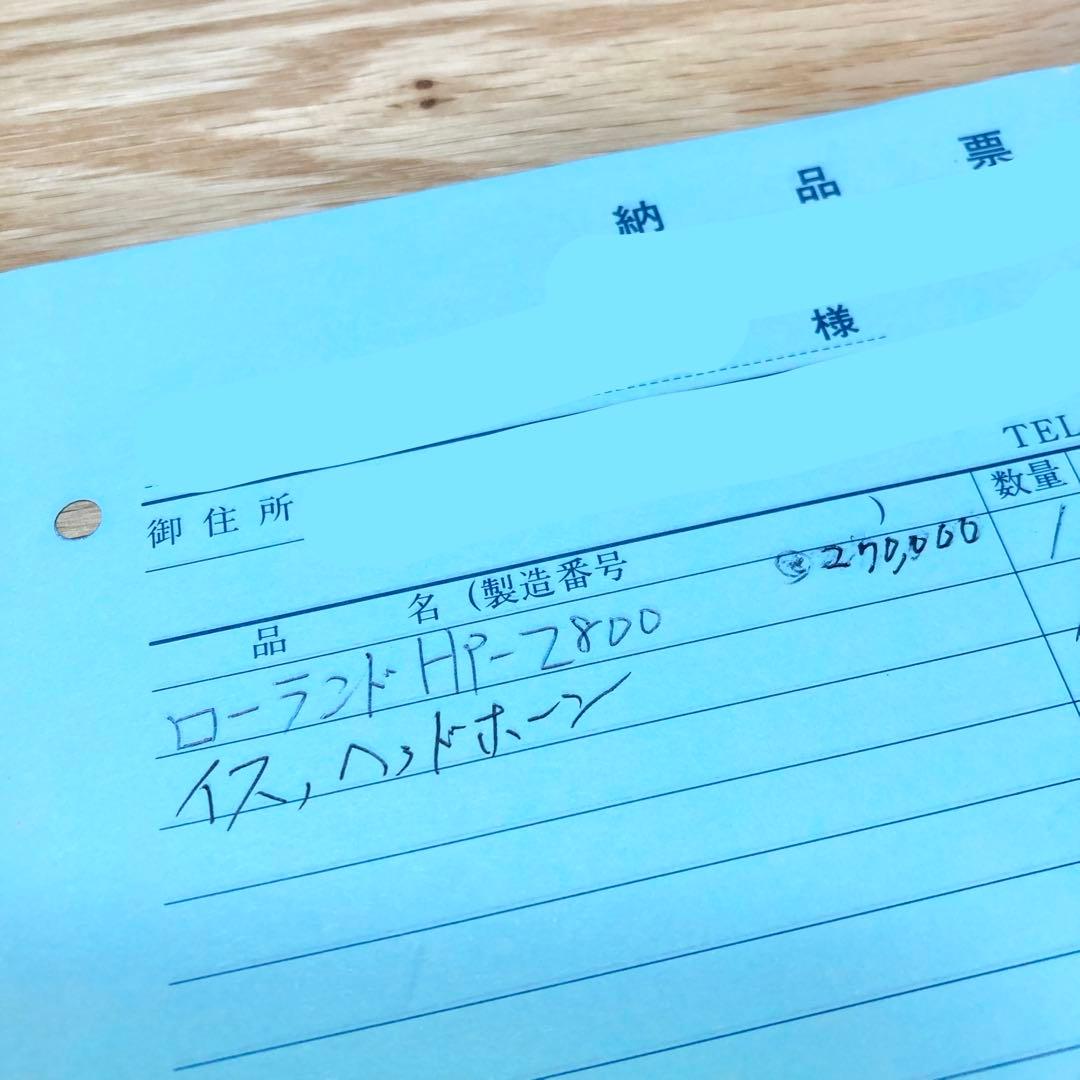 納品票
様
TEL
御住所
品名(製造番号) 数量
ローランド HP-2800 270,000 1
イス,ヘッドホーン